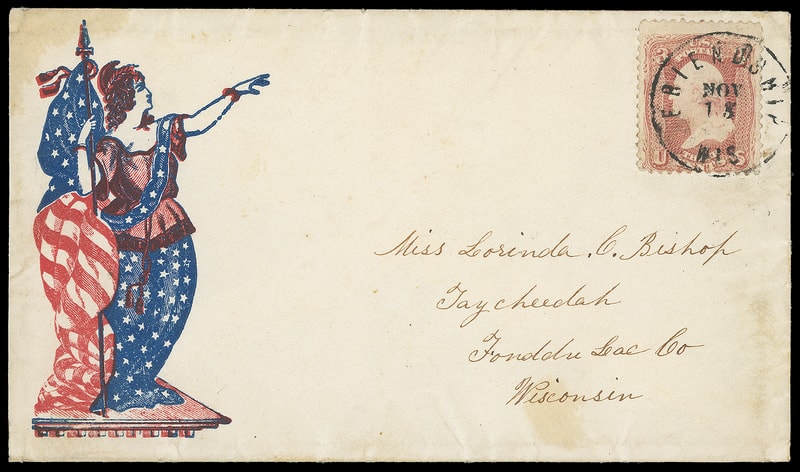 FRIENDSHIP
NOV
15
WIS
Miss Lorinda. C. Bishop
Taycheedah
Fonddu Lac Co
Wisconsin